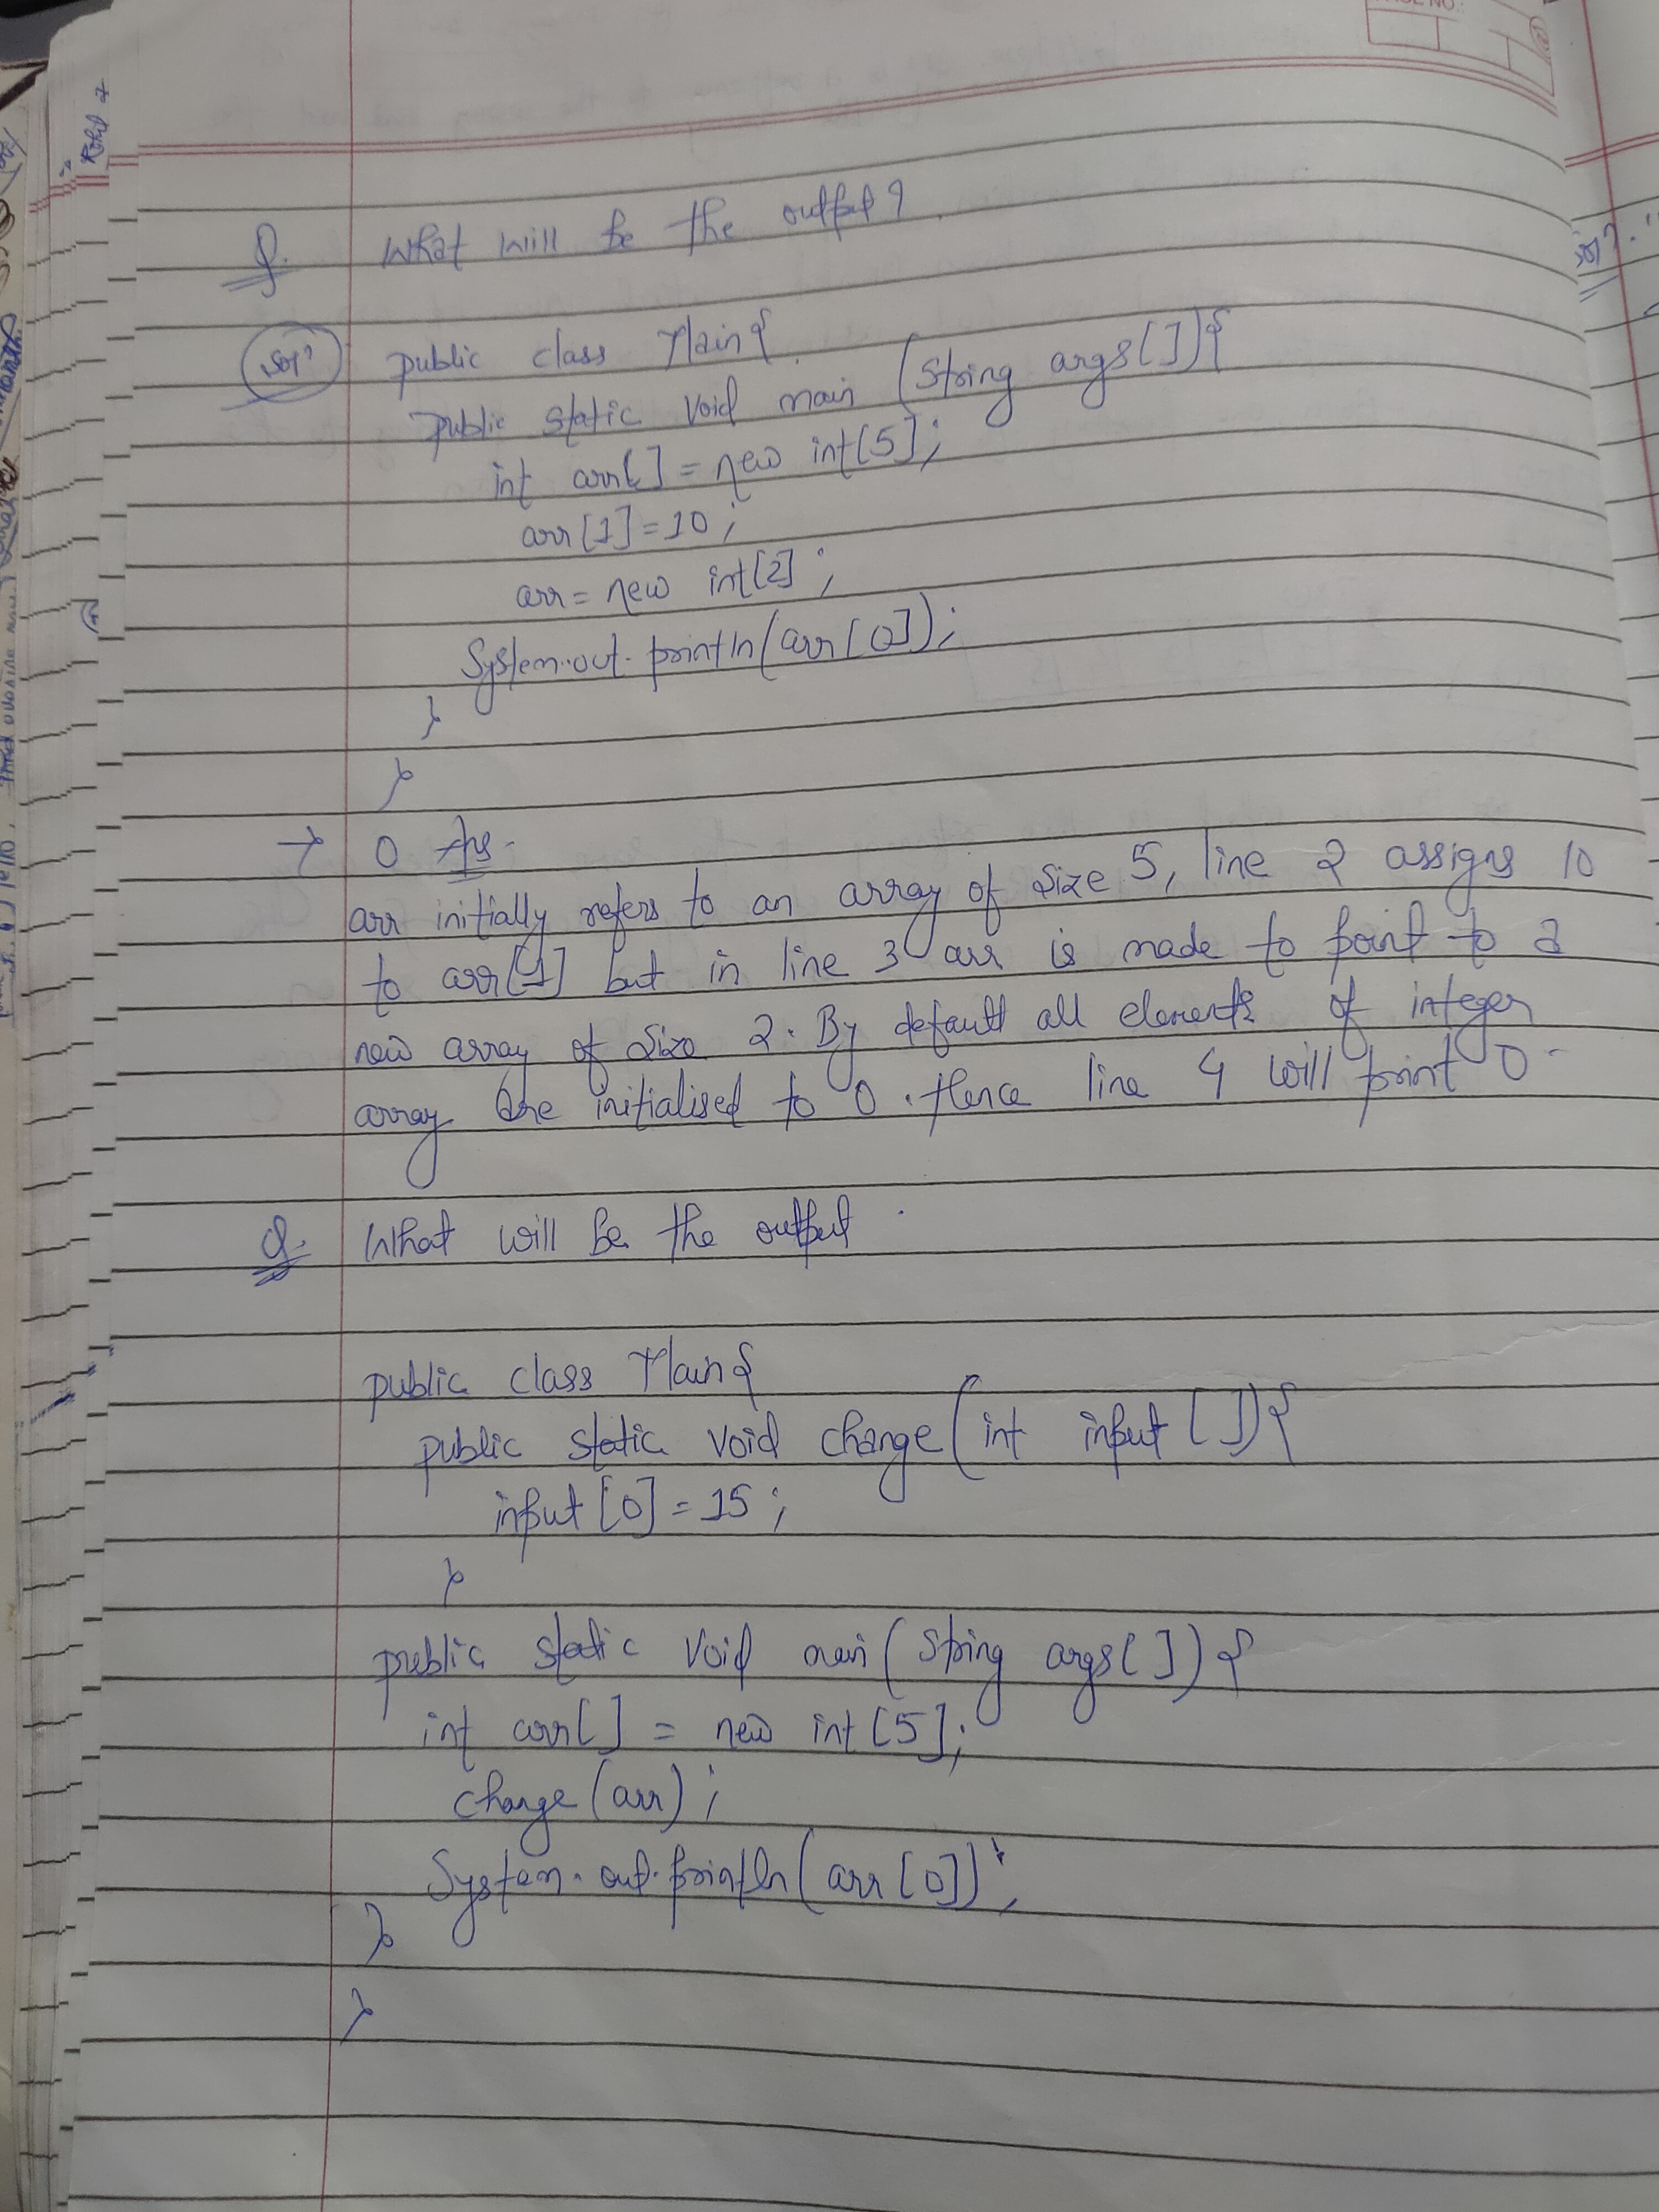 PAGE NO.:
Q. What will be the output?
Sol?
public class Main{
public static void main (String args[]){
int arr[] = new int[5];
arr[1]=10;
arr = new int[2];
System.out.println(arr[0]);
}
}
→ 0 Ans.
arr initially refers to an array of size 5, line 2 assigns 10
to arr[1] but in line 3 arr is made to point to a
new array of size 2. By default all elements of integer
array are initialised to 0. Hence line 4 will print 0.
Q. What will be the output.
public class Main{
public static void change (int input []){
input [0] = 15;
}
public static void main (String args[]) {
int arr[] = new int [5];
change (arr);
System.out.println(arr[0]);
}
}